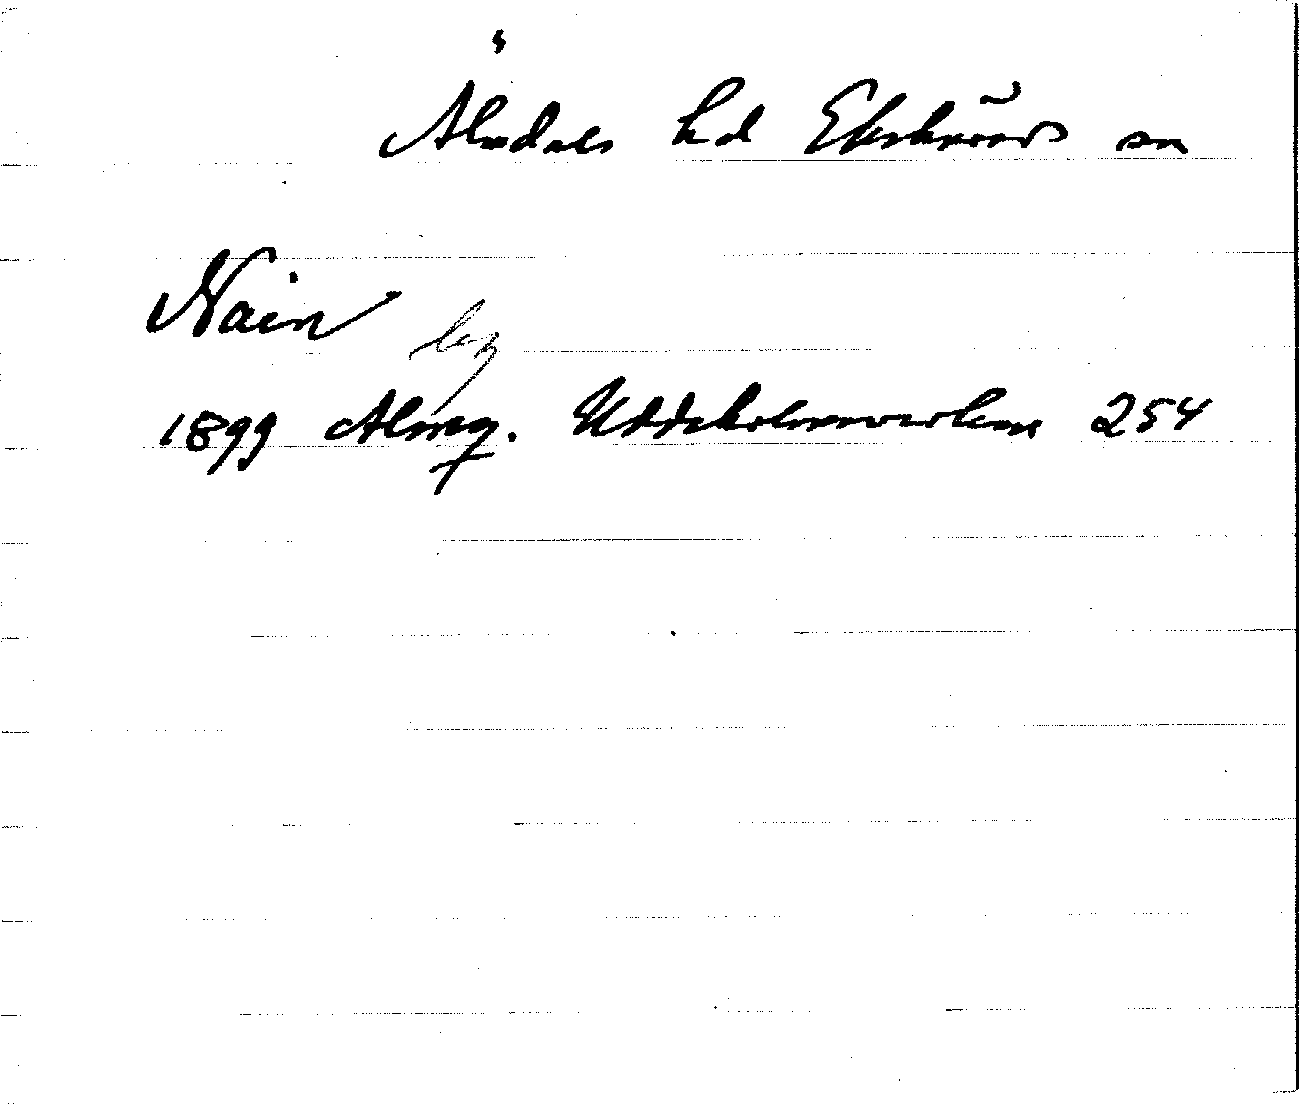 Älvdals hd Ekshärads sn
Nain bg
1899 Almq. Uddeholmsverken 254